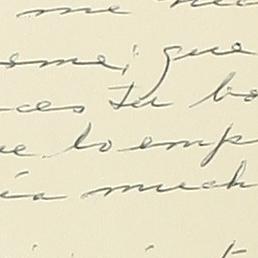 me
eme; que
ces tu bo
ue lo emp
ia much